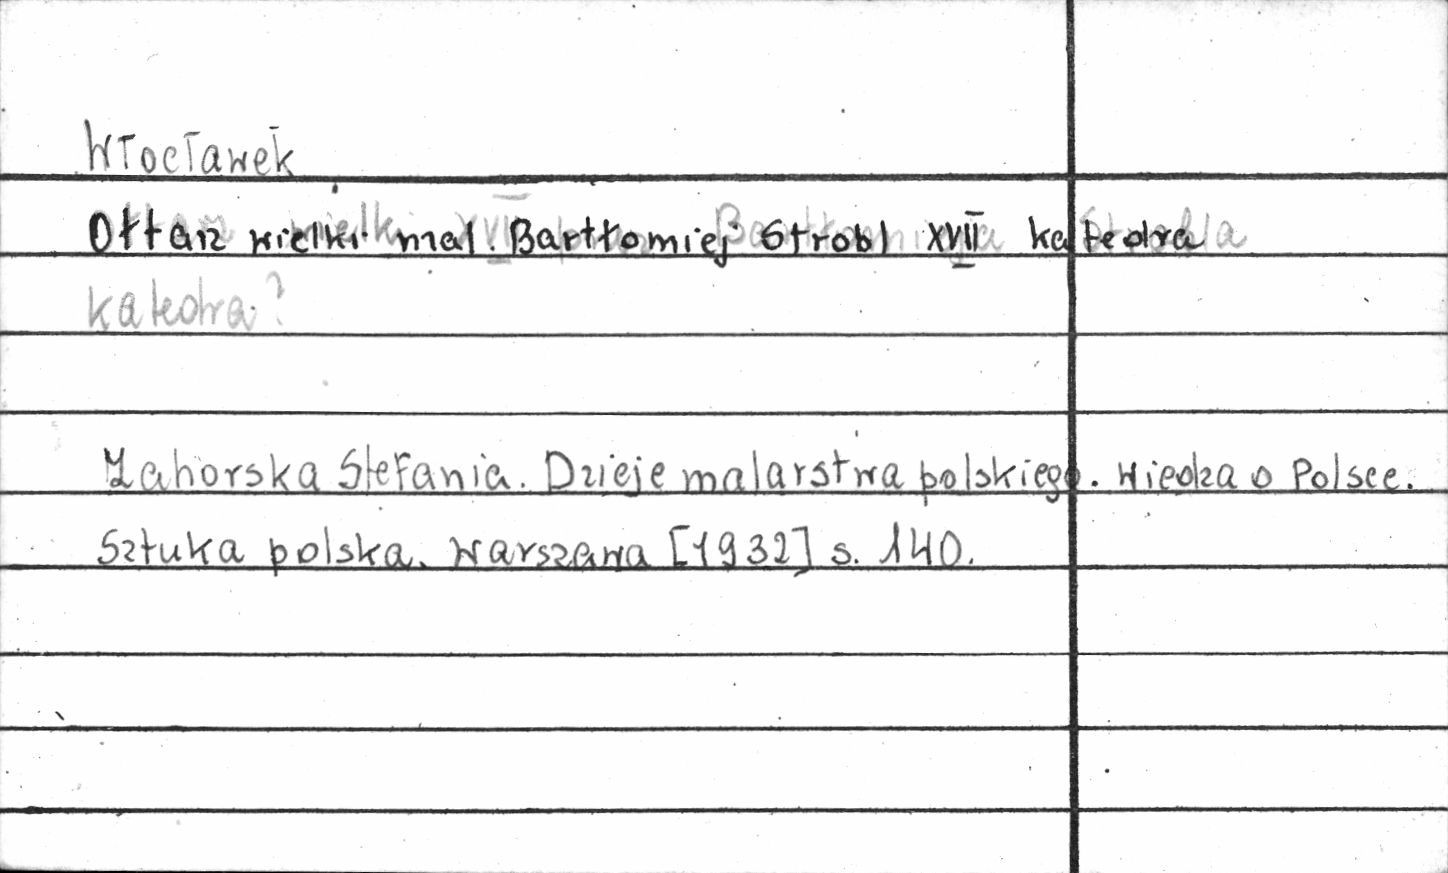 Włocławek
Ołtarz wielki mal. Bartłomiej Strobl XVII katedra
katedra?
Zahorska Stefania. Dzieje malarstwa polskiego. Wiedza o Polsce.
Sztuka polska. Warszawa [1932] s. 140.